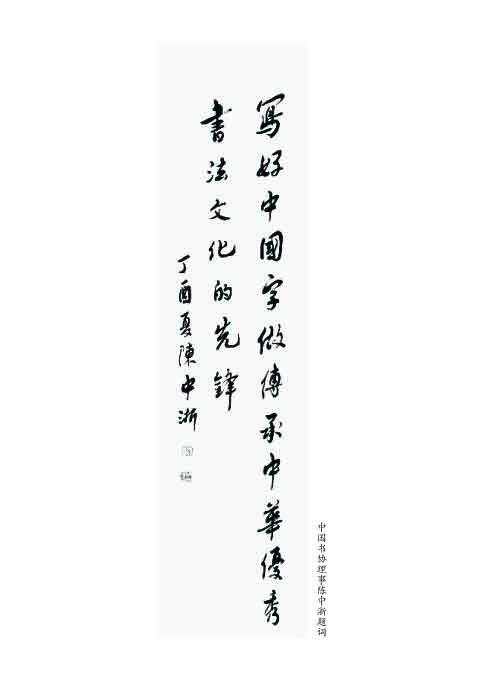 寫好中國字做傳承中華優秀
書法文化的先鋒
丁酉夏陳中浙
中国书协理事陈中浙题词